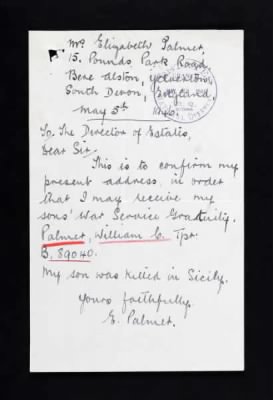 Mrs Elizabeth Palmer,
15. Pounds Park Road
Bere Alston, Yelverton,
South Devon, England
May 5th 1946.
To. The Director of Estates,
Dear Sir.
This is to confirm my
present address, in order
that I may receive my
sons' War Service Gratuity.
Palmer, William C. Tpr.
B. 89040.
My son was killed in Sicily.
Yours faithfully.
E. Palmer.